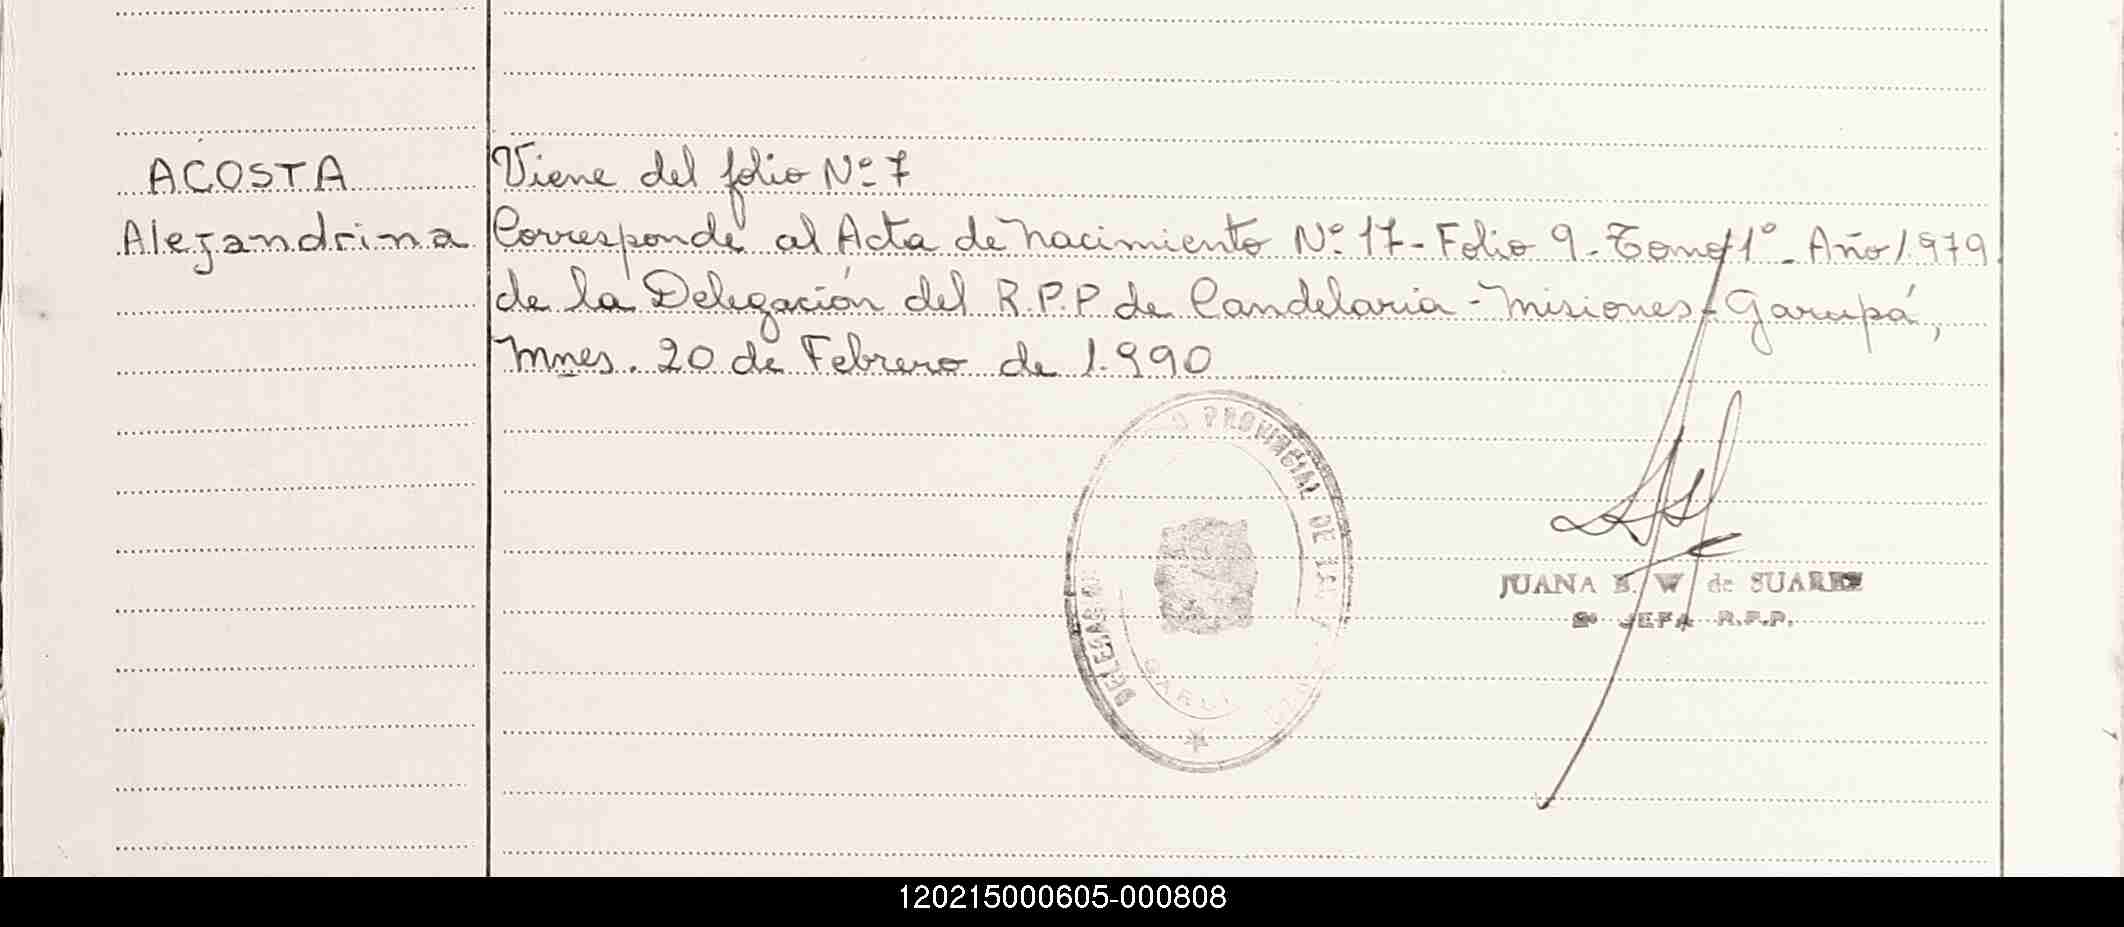 ACOSTA
Alejandrina
Viene del folio Nº 7
Corresponde al Acta de Nacimiento Nº 17 - Folio 9 - Tomo 1º - Año 1.979
de la Delegación del R.P.P de Candelaria - Misiones - Garupá,
Mnes. 20 de Febrero de 1.990
PROVINCIAL DE
JUANA E. W de SUAREZ
2º JEFA R.P.P.
120215000605-000808